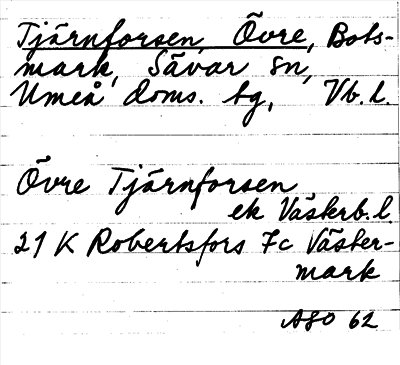 Tjärnforsen, Övre, Bots-
mark, Sävar sn,
Umeå doms. tg, Vb.l.
Övre Tjärnforsen
ek Västerb.l.
21 K Robertsfors 7c Väster-
mark
ASO 62